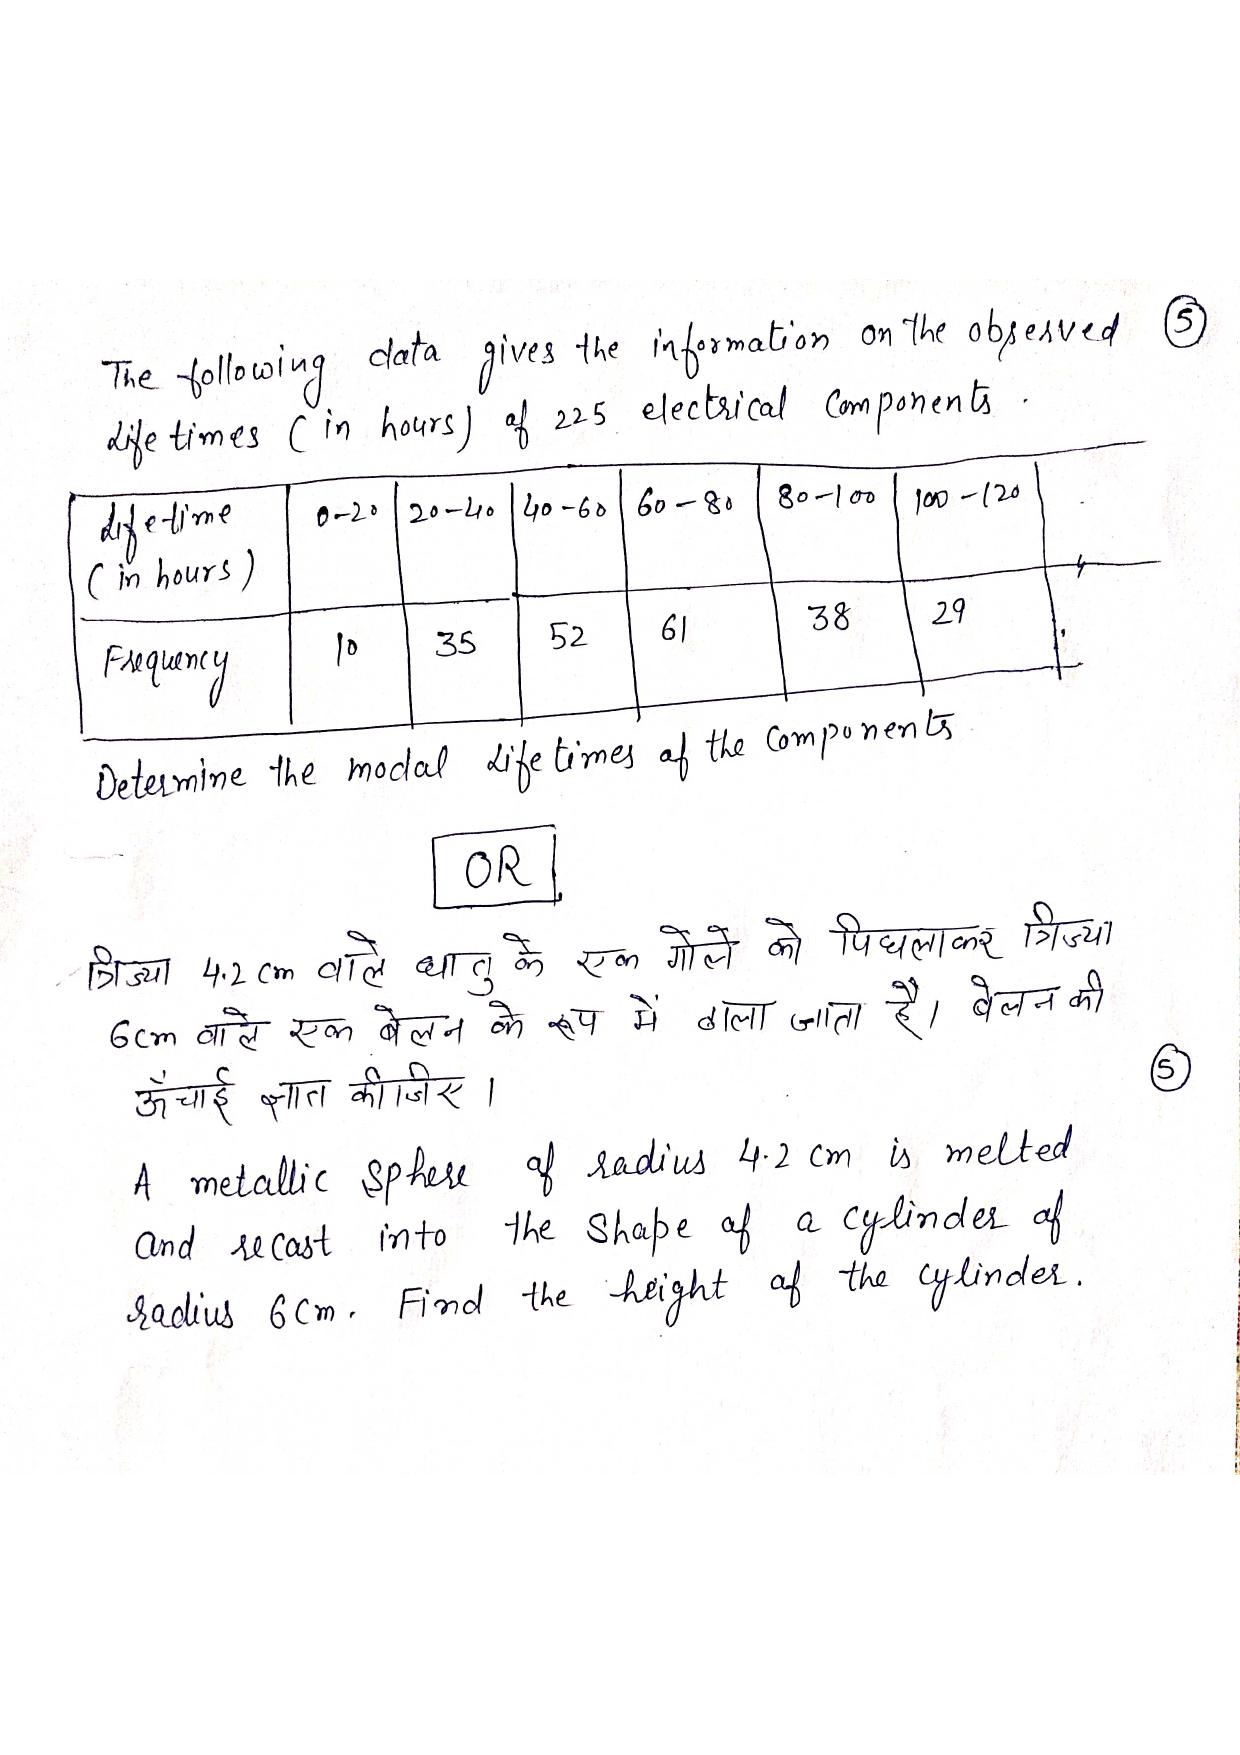 The following data gives the information on the observed ⑤
Lifetimes (in hours) of 225 electrical Components.
Lifetime (in hours) 0-20 20-40 40-60 60-80 80-100 100-120
Frequency 10 35 52 61 38 29
Determine the modal Lifetimes of the Components
OR
त्रिज्या 4.2 cm वाले धातु के एक गोले को पिघलाकर त्रिज्या
6cm वाले एक बेलन के रूप में ढाला जाता है। बेलन की
ऊँचाई ज्ञात कीजिए। ⑤
A metallic Sphere of radius 4.2 cm is melted
and recast into the Shape of a cylinder of
radius 6cm. Find the height of the cylinder.